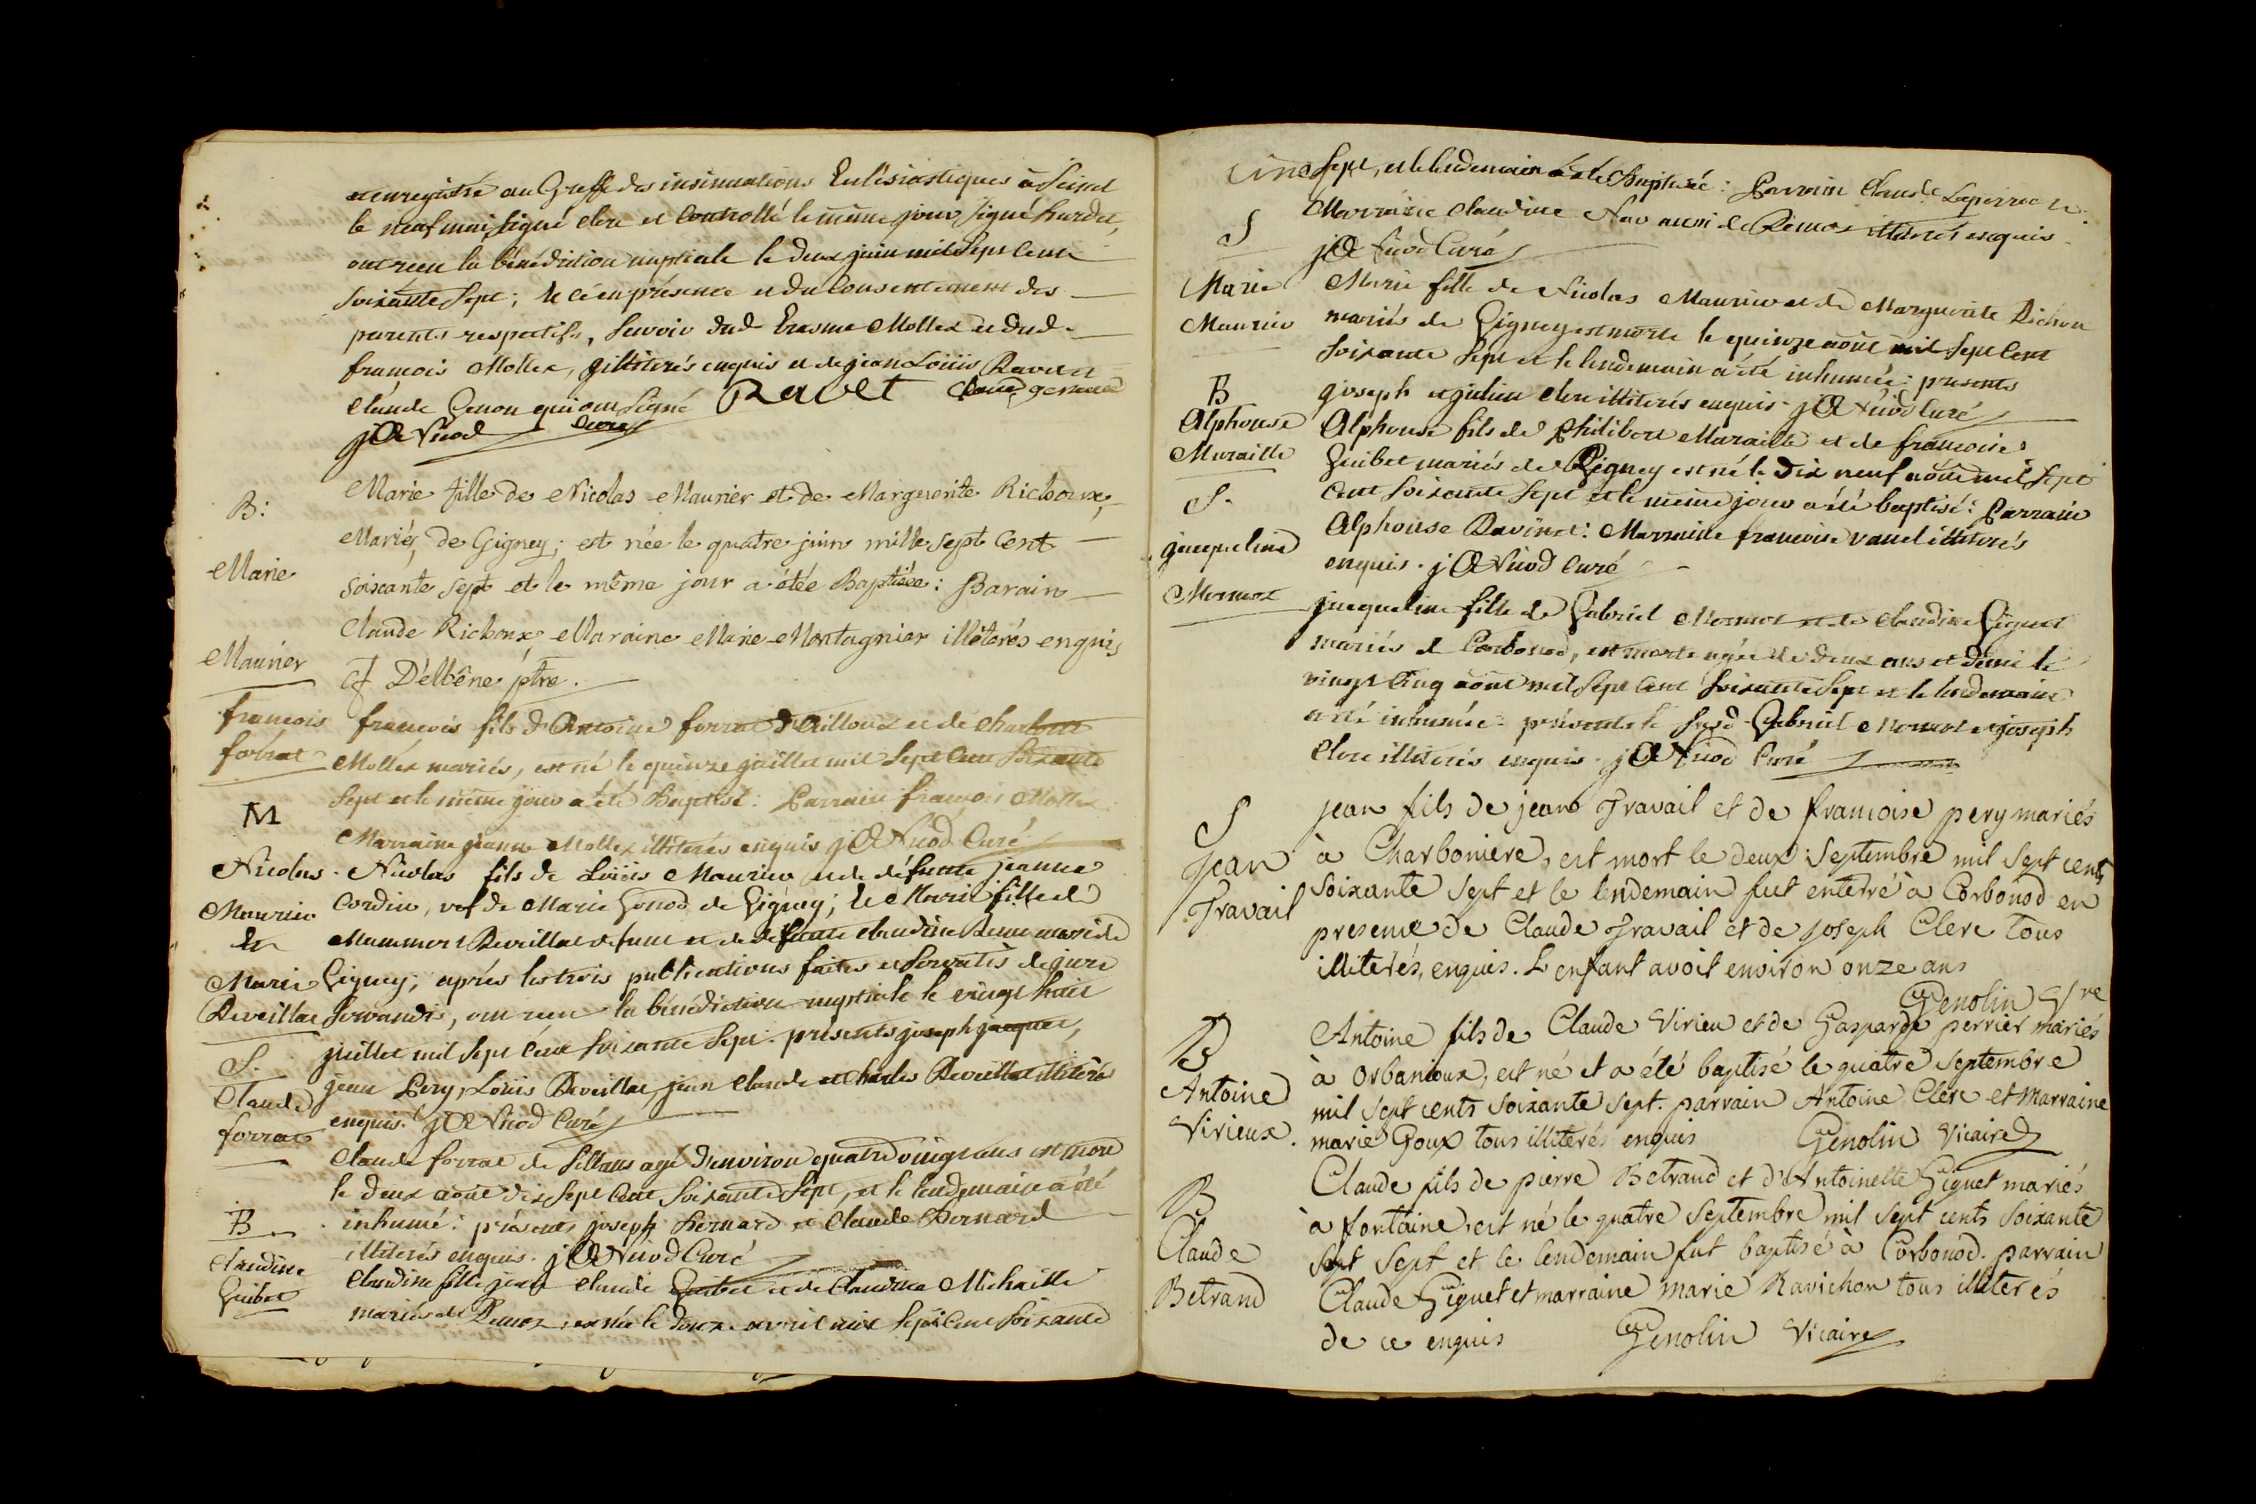 enregistré au Greffe des insinuations Eclésiastiques à
le neuf mai, signé clerc et controllé le même jour signé
ont reçu la bénédiction nuptiale le deux juin mil sept cent
soixante sept; le ci en présence et du consentement des
parents respectifs, sçavoir dud Erasme Mollex et dud
françois Mollex, illiterés enquis et de jean Loüis Ravet et
claude Genou qui ont signé Ravet Claude genoud
j Nicod curé
B:
Marie
Maurier
Marie fille de Nicolas Maurier et de Marguerite Richoux,
Mariés, de Gigney; est née le quatre juin mille sept Cent
soixante sept et le même jour a étée Baptisée: Parain
Claude Richoux, Maraine Marie Montagnier illiterés enquis
Délbêne ptre.
françois
forrat
françois fils d'Antoine forrat d'Eilloux et de charlotte
Mollex mariés, est né le quinze juillet mil sept cent soixante
sept et le même jour a été Baptisé: Parrain françois Mollex
Marraine jeanne Mollex illiterés enquis j Nicod Curé
M
Nicolas
Maurier
et
Marie
Deveillat
Nicolas fils de Loüis Maurier et de défunte jeanne
Cordier, vef de Marie Gonod de Gigney; et Marie fille de
Mammert Deveillat defunt et de defunte claudine
Gigney; après les trois publications faites et
, ont reçu la bénédiction nuptiale le vingt huit
juillet mil sept cent soixante sept. présents joseph jacquet,
jean Pery, Loüis Deveillat, jean claude et charles Deveillat illiterés
enquis. j Nicod Curé
S.
Claude
forrat
Claude forrat de Sillans agé d'environ quatre vingt ans est mort
le deux aout dix sept cent soixante sept, et le lendemain a été
inhumé: présents joseph Bernard et Claude Bernard
illiterés enquis. j Nicod Curé
B
claudine
Guibet
Claudine fille jean claude Guibet et de Claudine Michaille
mariés de Remoz; est née le douze avril mil sept cent soixante
sept, et le lendemain a été Baptisée: Parrain Claude
Marraine claudine Nav aussi de Remoz illiterés enquis
j Nicod Curé
S
Marie
Maurier
Marie fille de Nicolas Maurier et de Marguerite Richou
mariés de Gigney est morte le quinze août mil sept cent
soixante sept et le lendemain a été inhumée: presents
joseph et julien clerc illiterés enquis. j Nicod Curé
B
Alphonse
Muraille
Alphonse fils de Philibert Muraille et de françoise
Guibet mariés de Gigney est né le dix neuf août mil sept
cent soixante sept et le même jour a été baptisé: Parrain
Alphonse Ravinet: Marraine françoise illiterés
enquis. j Nicod Curé
S.
jacqueline
Mermet
jacqueline fille de Gabriel Mermet et de claudine Giguet
mariés de Corbonod, est morte agée de deux ans et demi le
vingt cinq août mil sept cent soixante sept et le lendemain
a été inhumée: présents le susd Gabriel Mermet et joseph
Clerc illiterés enquis. j Nicod Curé
S
jean
Travail
jean fils de jean Travail et de françoise pery mariés
à Charboniere, est mort le deux Septembre mil sept cents
soixante sept et le lendemain fut enterré à Corbonod en
presence de Claude Travail et de joseph Clerc tous
illiterés, enquis. L'enfant avoit environ onze ans
Genolin Vre
B
Antoine
Virieux.
Antoine fils de Claude Virieu et de Gasparde perrier mariés
à orbanioux, est né et a été baptisé le quatre septembre
mil sept cents soixante sept. parrain Antoine Clerc et Marraine
marie Goux tous illiterés enquis Genolin Vicaire
B
Claude
Betrand
Claude fils de pierre Betrand et d'Antoinette Giguet mariés
à fontaine, est né le quatre septembre mil sept cents soixante
sept sept et le lendemain fut baptisé à Corbonod. parrain
Claude Giguet et marraine marie Ravichon tous illiterés
de ce enquis Genolin Vicaire